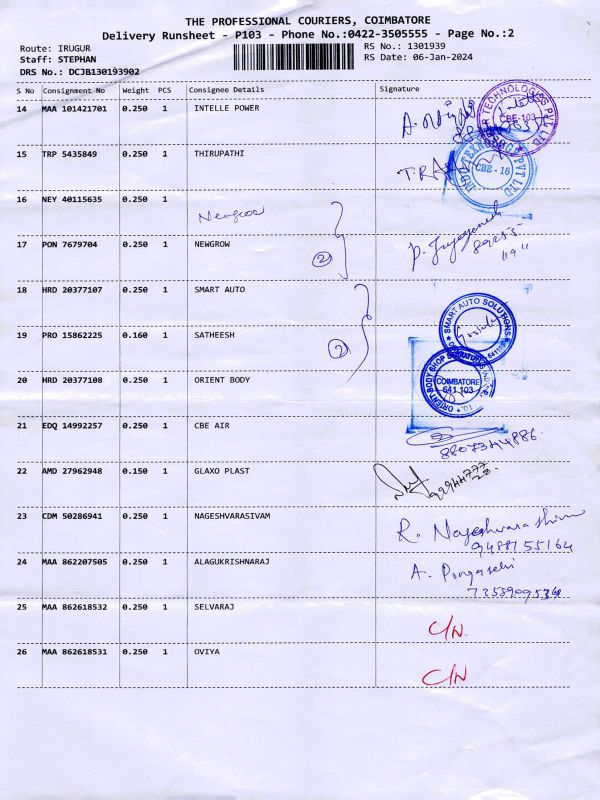 THE PROFESSIONAL COURIERS, COIMBATORE
Delivery Runsheet - P103 - Phone No.:0422-3505555 - Page No.:2
Route: IRUGUR
Staff: STEPHAN
DRS No.: DCJB130193902
RS No.: 1301939
RS Date: 06-Jan-2024
S No Consignment No Weight PCS Consignee Details Signature
14 MAA 101421701 0.250 1 INTELLE POWER
CBE-103
15 TRP 5435849 0.250 1 THIRUPATHI
CBE - 16
16 NEY 40115635 0.250 1 Newgrow
17 PON 7679704 0.250 1 NEWGROW
2
18 HRD 20377107 0.250 1 SMART AUTO
SMART AUTO SOLUTIONS
19 PRO 15862225 0.160 1 SATHEESH
2
20 HRD 20377108 0.250 1 ORIENT BODY
ORIENT BODY SHOP
COIMBATORE
641 103
21 EDQ 14992257 0.250 1 CBE AIR
8807344886.
22 AMD 27962948 0.150 1 GLAXO PLAST
23 CDM 50286941 0.250 1 NAGESHVARASIVAM
R. Nageshwara Shivam
9488155164
24 MAA 862207505 0.250 1 ALAGUKRISHNARAJ
A.
25 MAA 862618532 0.250 1 SELVARAJ
C/N.
26 MAA 862618531 0.250 1 OVIYA
C/N